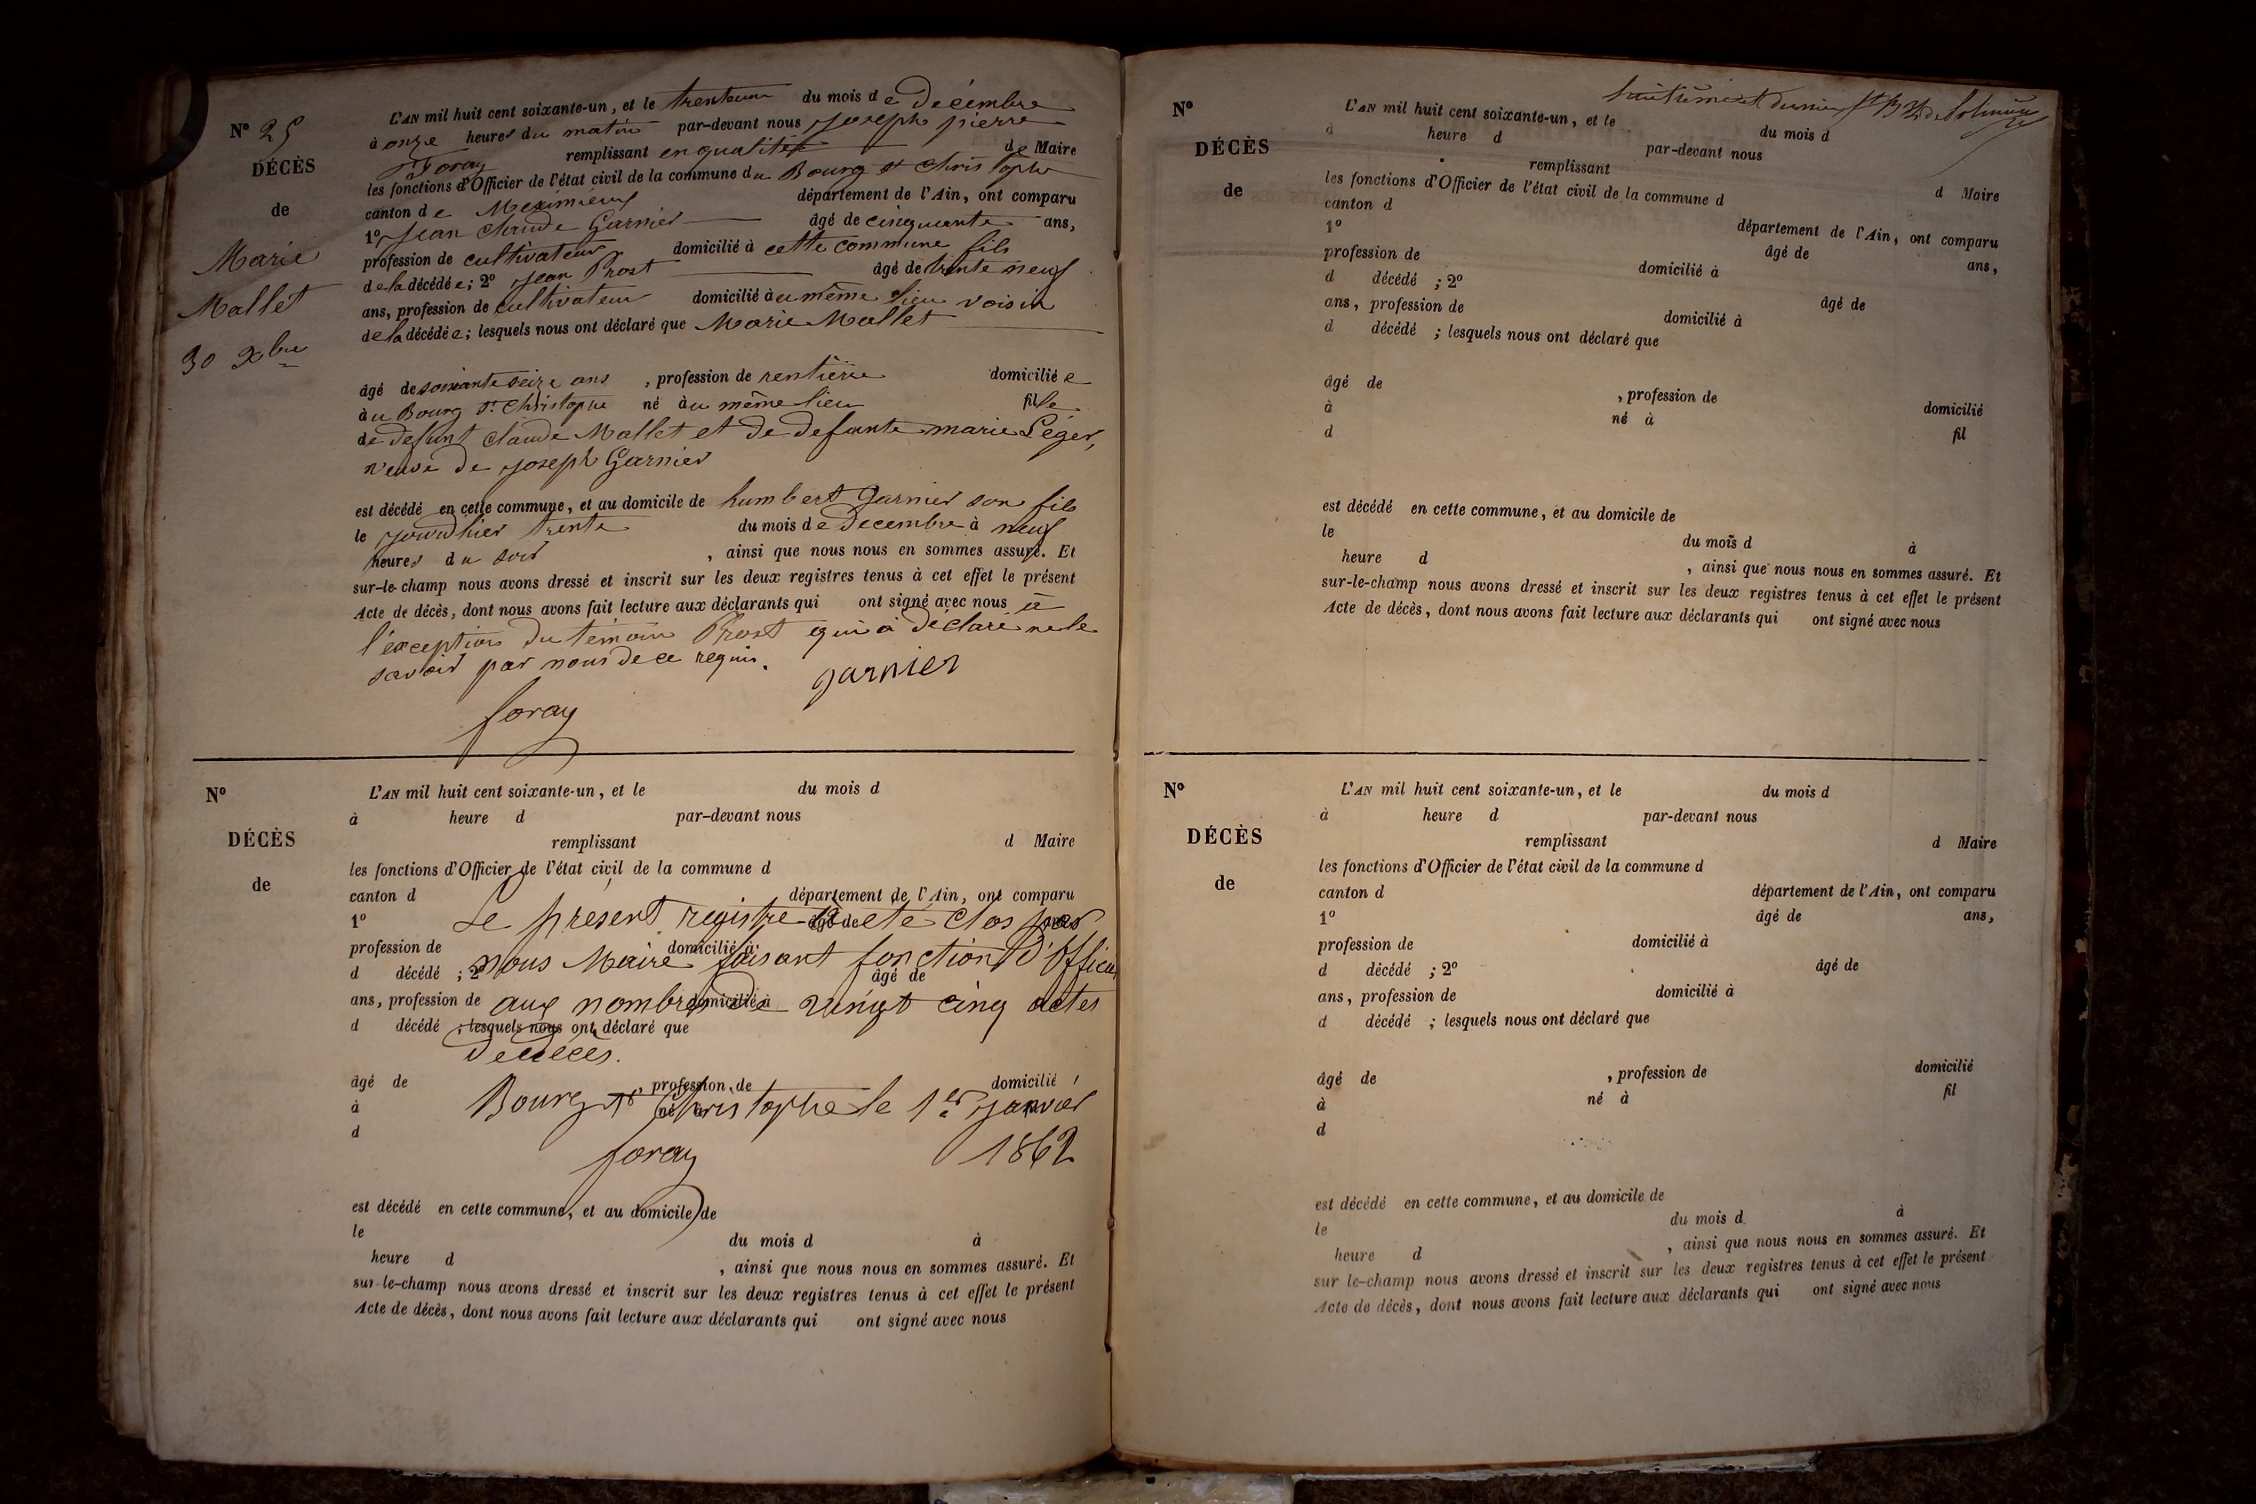 N° 25
DÉCÈS
de
Marie
Mallet
30 Xbre
L'AN mil huit cent soixante-un, et le trente un du mois de Décembre
à onze heures du matin par-devant nous Joseph pierre
Foray remplissant en qualité de Maire
les fonctions d'Officier de l'état civil de la commune du Bourg St Christophe
canton de Meximieux département de l'Ain, ont comparu
1° Jean Claude Garnier âgé de cinquante ans,
profession de cultivateur domicilié à cette commune fils
de la décédée; 2° Jean Prost âgé de trente neuf
ans, profession de cultivateur domicilié au même lieu voisin
de la décédée; lesquels nous ont déclaré que Marie Mallet
âgé de soixante seize ans, profession de rentière domiciliée
au Bourg St Christophe né au même lieu fille
de defunt Claude Mallet et de defunte marie Léger,
veuve de Joseph Garnier
est décédé en cette commune, et au domicile de humbert Garnier son fils
le jourdhier trente du mois de decembre à neuf
heures du soir, ainsi que nous nous en sommes assuré. Et
sur-le-champ nous avons dressé et inscrit sur les deux registres tenus à cet effet le présent
Acte de décès, dont nous avons fait lecture aux déclarants qui ont signé avec nous à
l'éxception du témoin Prost qui a déclaré ne le
savoir par nous de ce requis.
garnier
foray
N°
DÉCÈS
de
L'AN mil huit cent soixante-un, et le du mois d
à heure d par-devant nous
remplissant d Maire
les fonctions d'Officier de l'état civil de la commune d
canton d département de l'Ain, ont comparu
1° âgé de ans,
Le présent registre a été clos par
profession de domicilié à
nous Maire faisant fonction d'Officier
d décédé ; 2° âgé de
ans, profession de domicilié à
aux nombres de vingt cinq actes
d décédé ; lesquels nous ont déclaré que
de décès.
âgé de , profession de domicilié
à né à fil
Bourg St Christophe le 1er Janvier
d
foray 1862
est décédé en cette commune, et au domicile de
le du mois d à
heure d , ainsi que nous nous en sommes assuré. Et
sur-le-champ nous avons dressé et inscrit sur les deux registres tenus à cet effet le présent
Acte de décès, dont nous avons fait lecture aux déclarants qui ont signé avec nous
huitième et dernier
N°
DÉCÈS
de
L'AN mil huit cent soixante-un, et le du mois d
à heure d par-devant nous
remplissant d Maire
les fonctions d'Officier de l'état civil de la commune d
canton d département de l'Ain, ont comparu
1° âgé de ans,
profession de domicilié à
d décédé ; 2° âgé de
ans, profession de domicilié à
d décédé ; lesquels nous ont déclaré que
âgé de , profession de domicilié
à né à fil
d
est décédé en cette commune, et au domicile de
le du mois d à
heure d , ainsi que nous nous en sommes assuré. Et
sur-le-champ nous avons dressé et inscrit sur les deux registres tenus à cet effet le présent
Acte de décès, dont nous avons fait lecture aux déclarants qui ont signé avec nous
N°
DÉCÈS
de
L'AN mil huit cent soixante-un, et le du mois d
à heure d par-devant nous
remplissant d Maire
les fonctions d'Officier de l'état civil de la commune d
canton d département de l'Ain, ont comparu
1° âgé de ans,
profession de domicilié à
d décédé ; 2° âgé de
ans, profession de domicilié à
d décédé ; lesquels nous ont déclaré que
âgé de , profession de domicilié
à né à fil
d
est décédé en cette commune, et au domicile de
le du mois d à
heure d , ainsi que nous nous en sommes assuré. Et
sur le-champ nous avons dressé et inscrit sur les deux registres tenus à cet effet le présent
Acte de décès, dont nous avons fait lecture aux déclarants qui ont signé avec nous